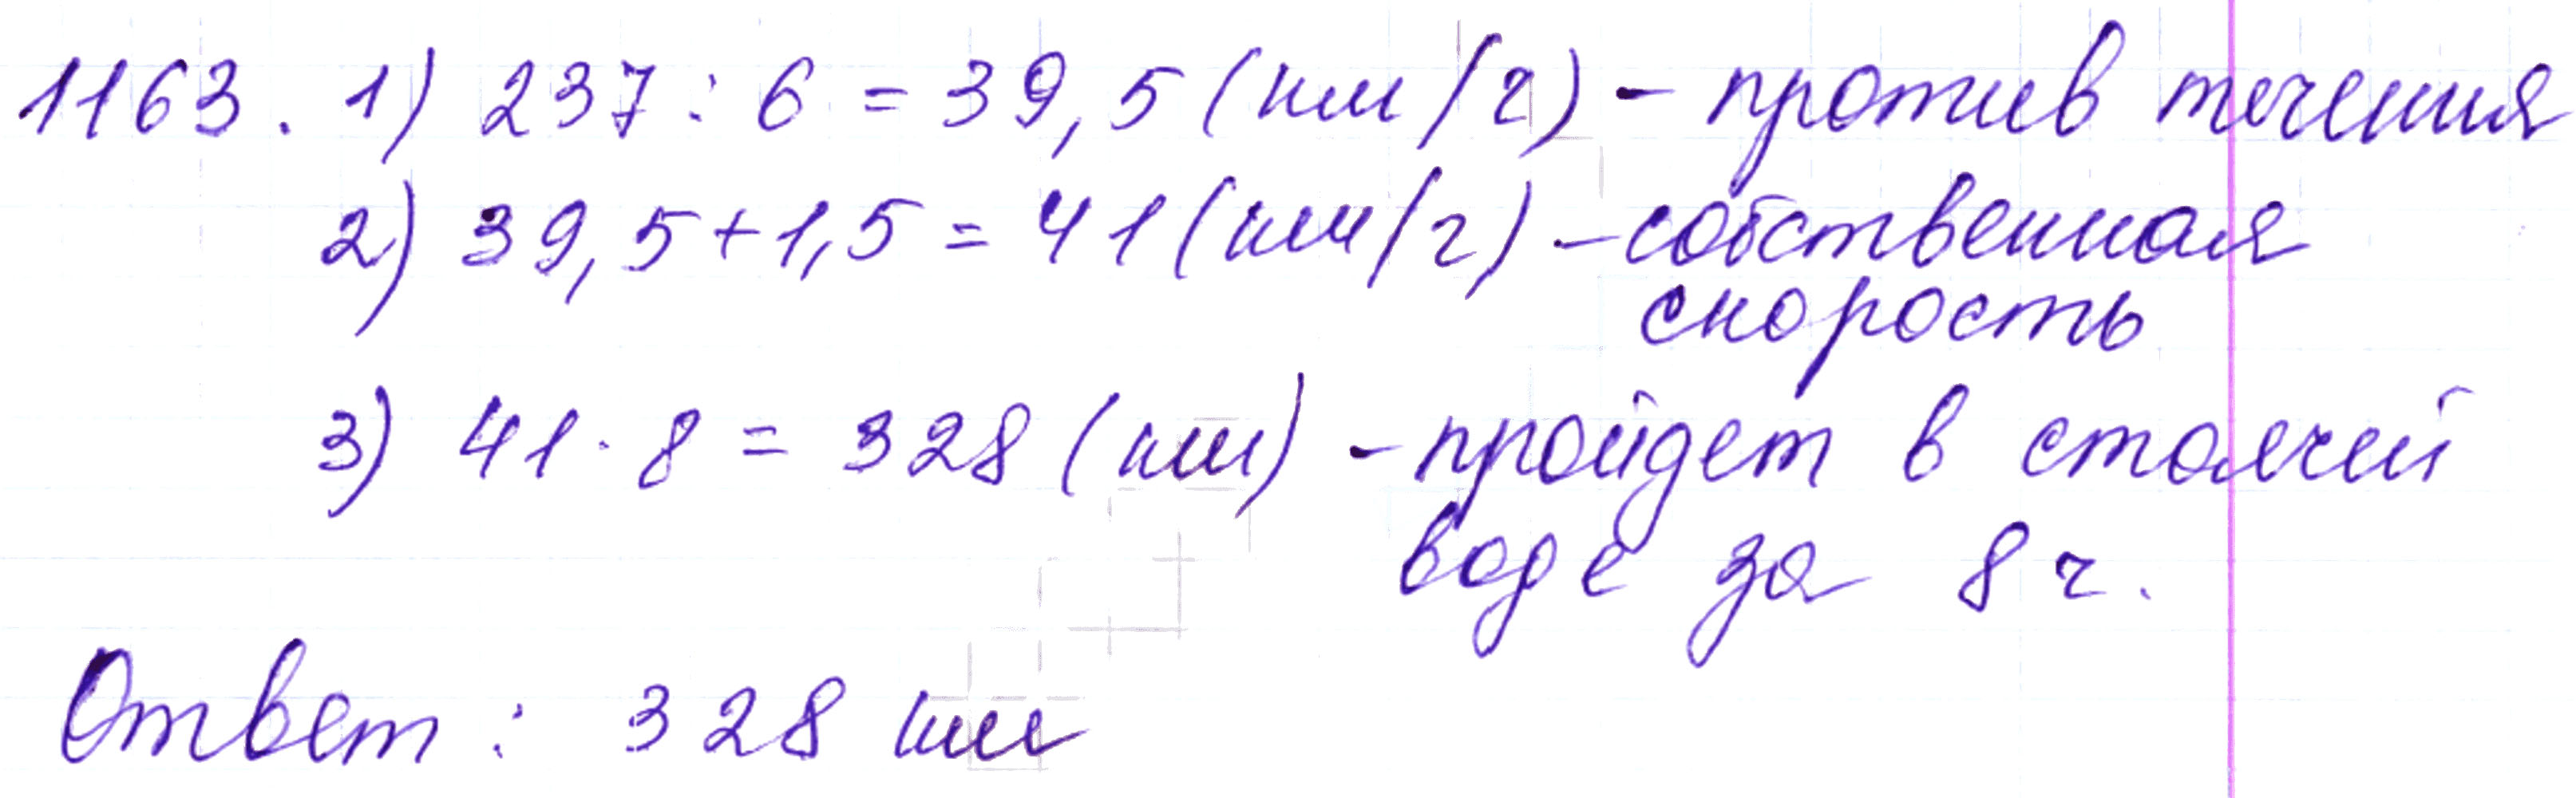 1163. 1) 237 : 6 = 39,5 (км/ч) - против течения
2) 39,5 + 1,5 = 41 (км/ч) - собственная
скорость
3) 41 · 8 = 328 (км) - пройдет в стоячей
воде за 8 ч.
Ответ : 328 км